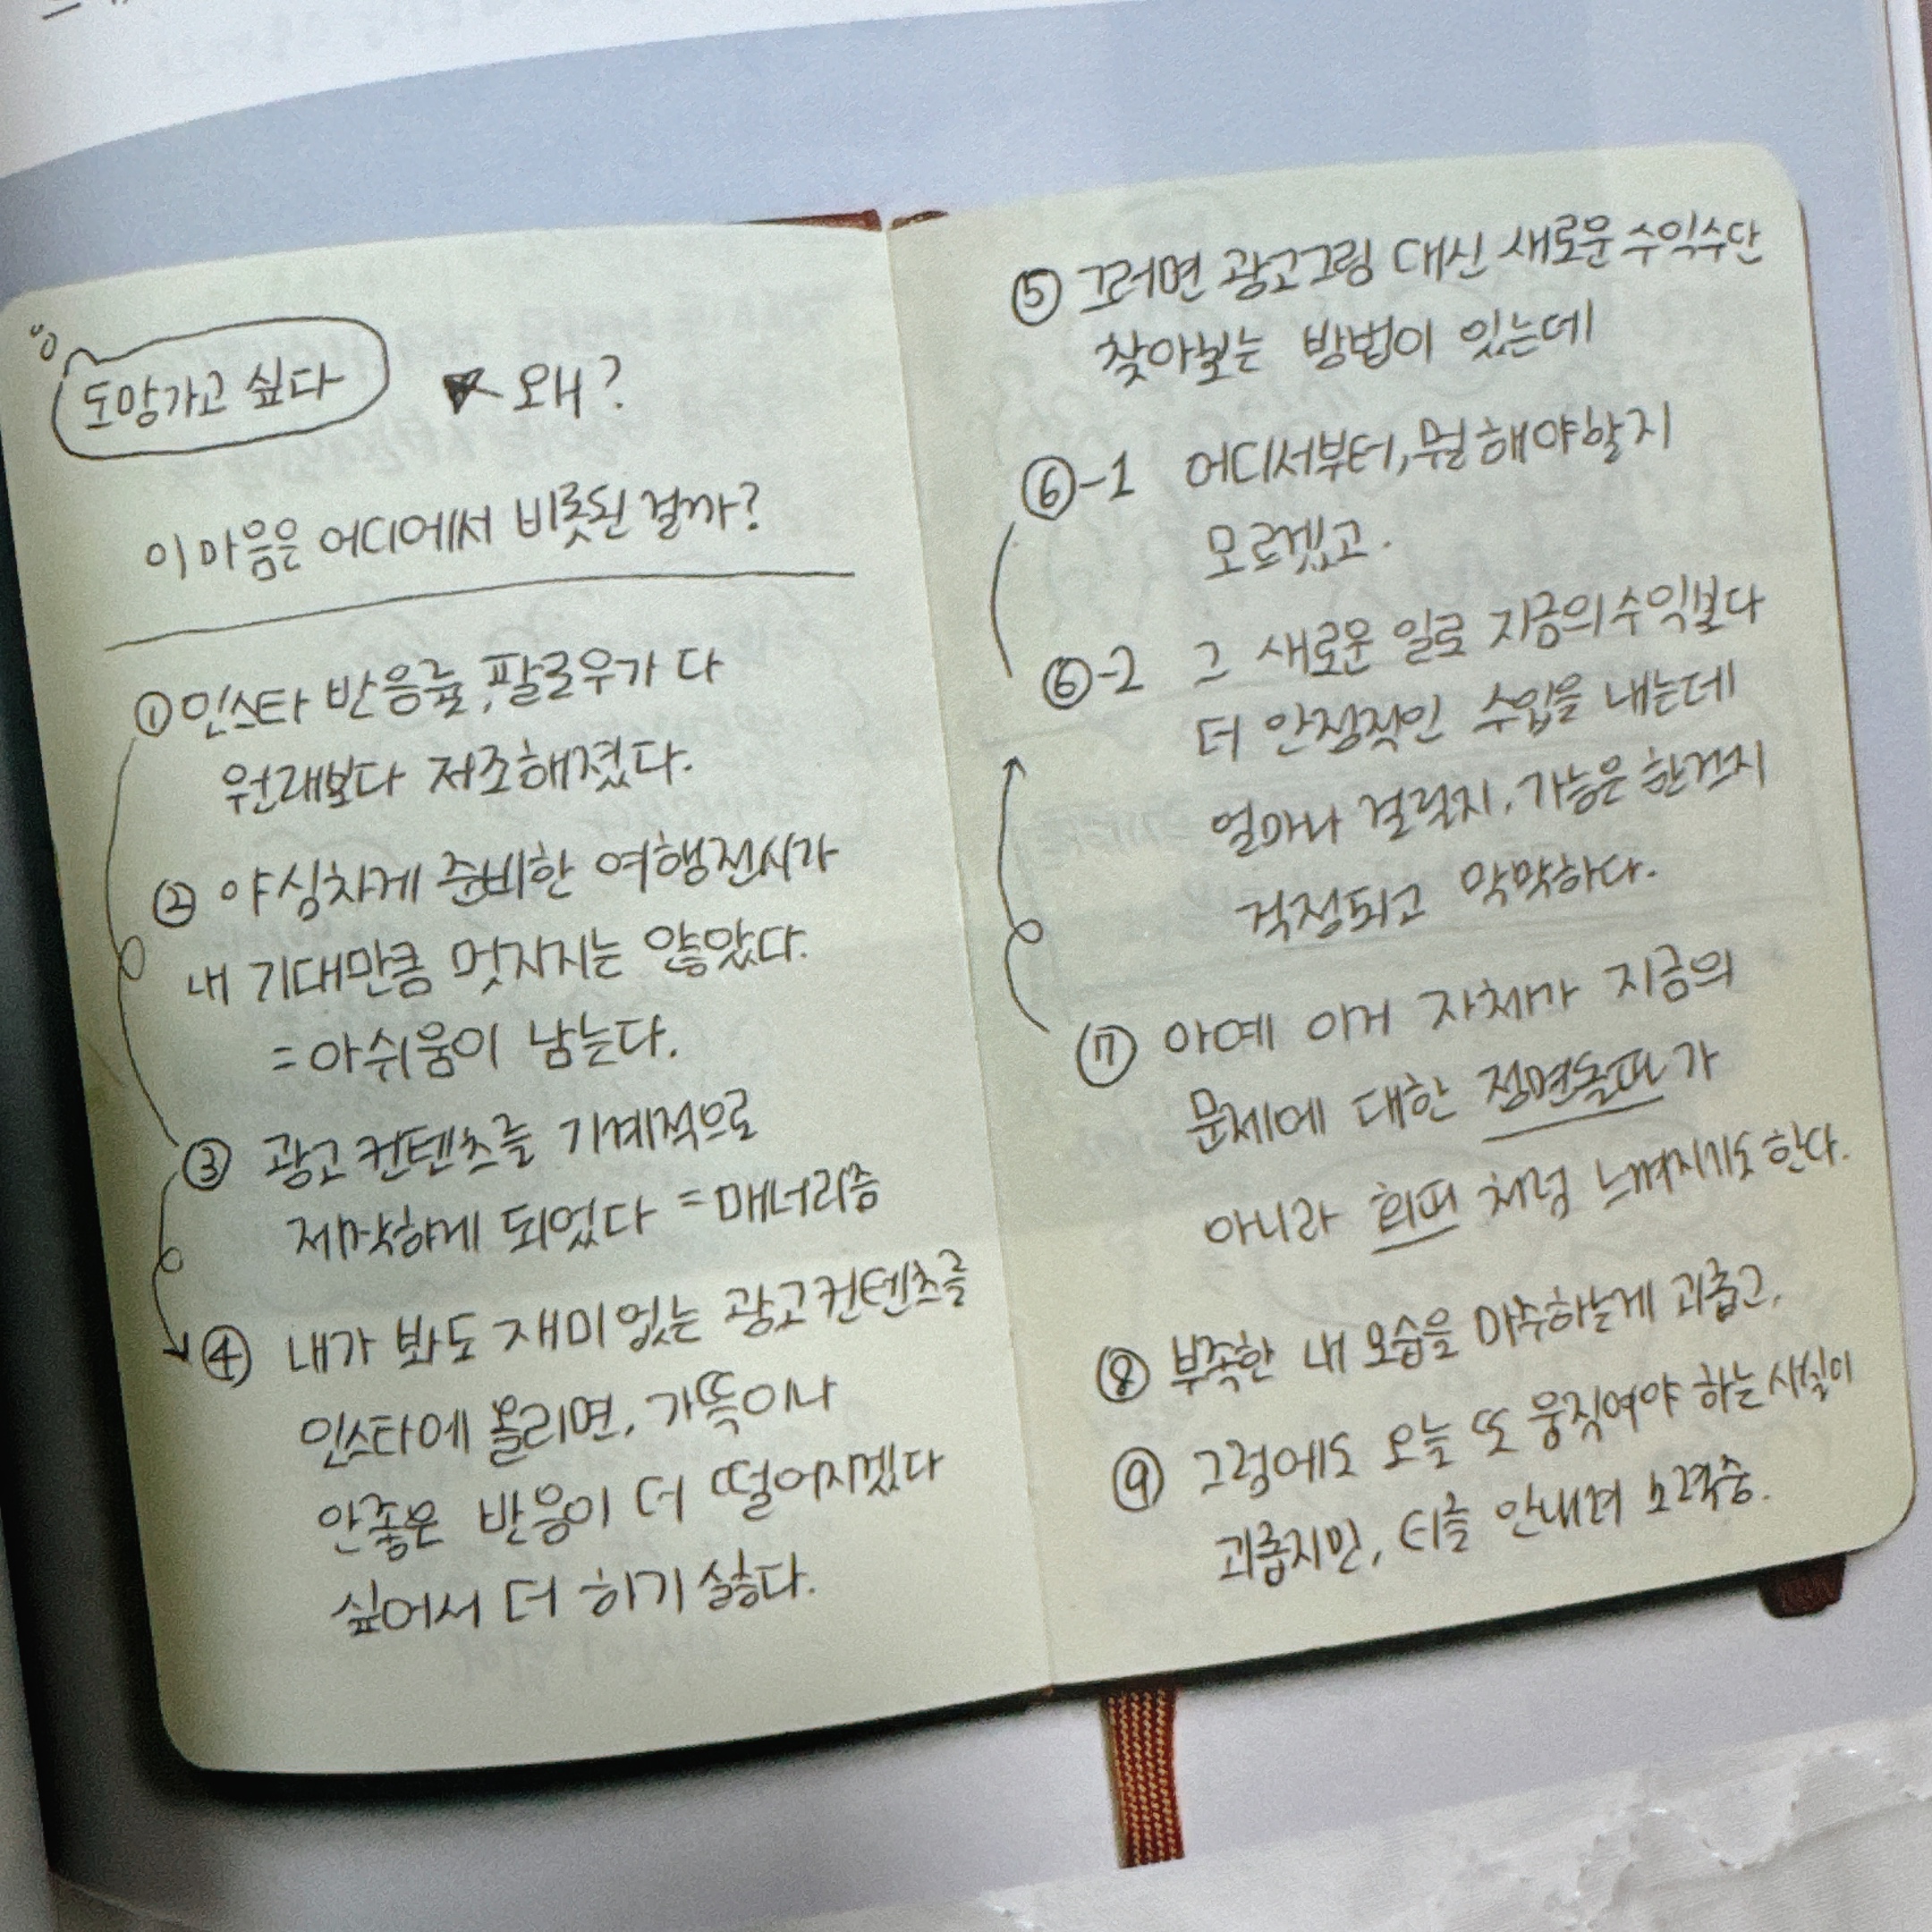 도망가고 싶다 왜?
이 마음은 어디에서 비롯된 걸까?
① 인스타 반응률, 팔로우가 다
원래보다 저조해졌다.
② 야심차게 준비한 여행전시가
내 기대만큼 멋지지는 않았다.
= 아쉬움이 남는다.
③ 광고 컨텐츠를 기계적으로
제작하게 되었다 = 매너리즘
④ 내가 봐도 재미없는 광고컨텐츠를
인스타에 올리면, 가뜩이나
안좋은 반응이 더 떨어지겠다
싶어서 더 하기 싫다.
⑤ 그러면 광고그림 대신 새로운 수익수단
찾아보는 방법이 있는데
⑥-1 어디서부터, 뭘 해야할지
모르겠고.
⑥-2 그 새로운 일로 지금의 수익보다
더 안정적인 수입을 내는데
얼마나 걸릴지, 가능은 한건지
걱정되고 막막하다.
⑦ 아예 이거 자체가 지금의
문제에 대한 정면돌파가
아니라 회피 처럼 느껴지기도 한다.
⑧ 부족한 내 모습을 마주하는게 괴롭고,
⑨ 그럼에도 오늘 또 움직여야 하는 사실이
괴롭지만, 티를 안내려 노력중.